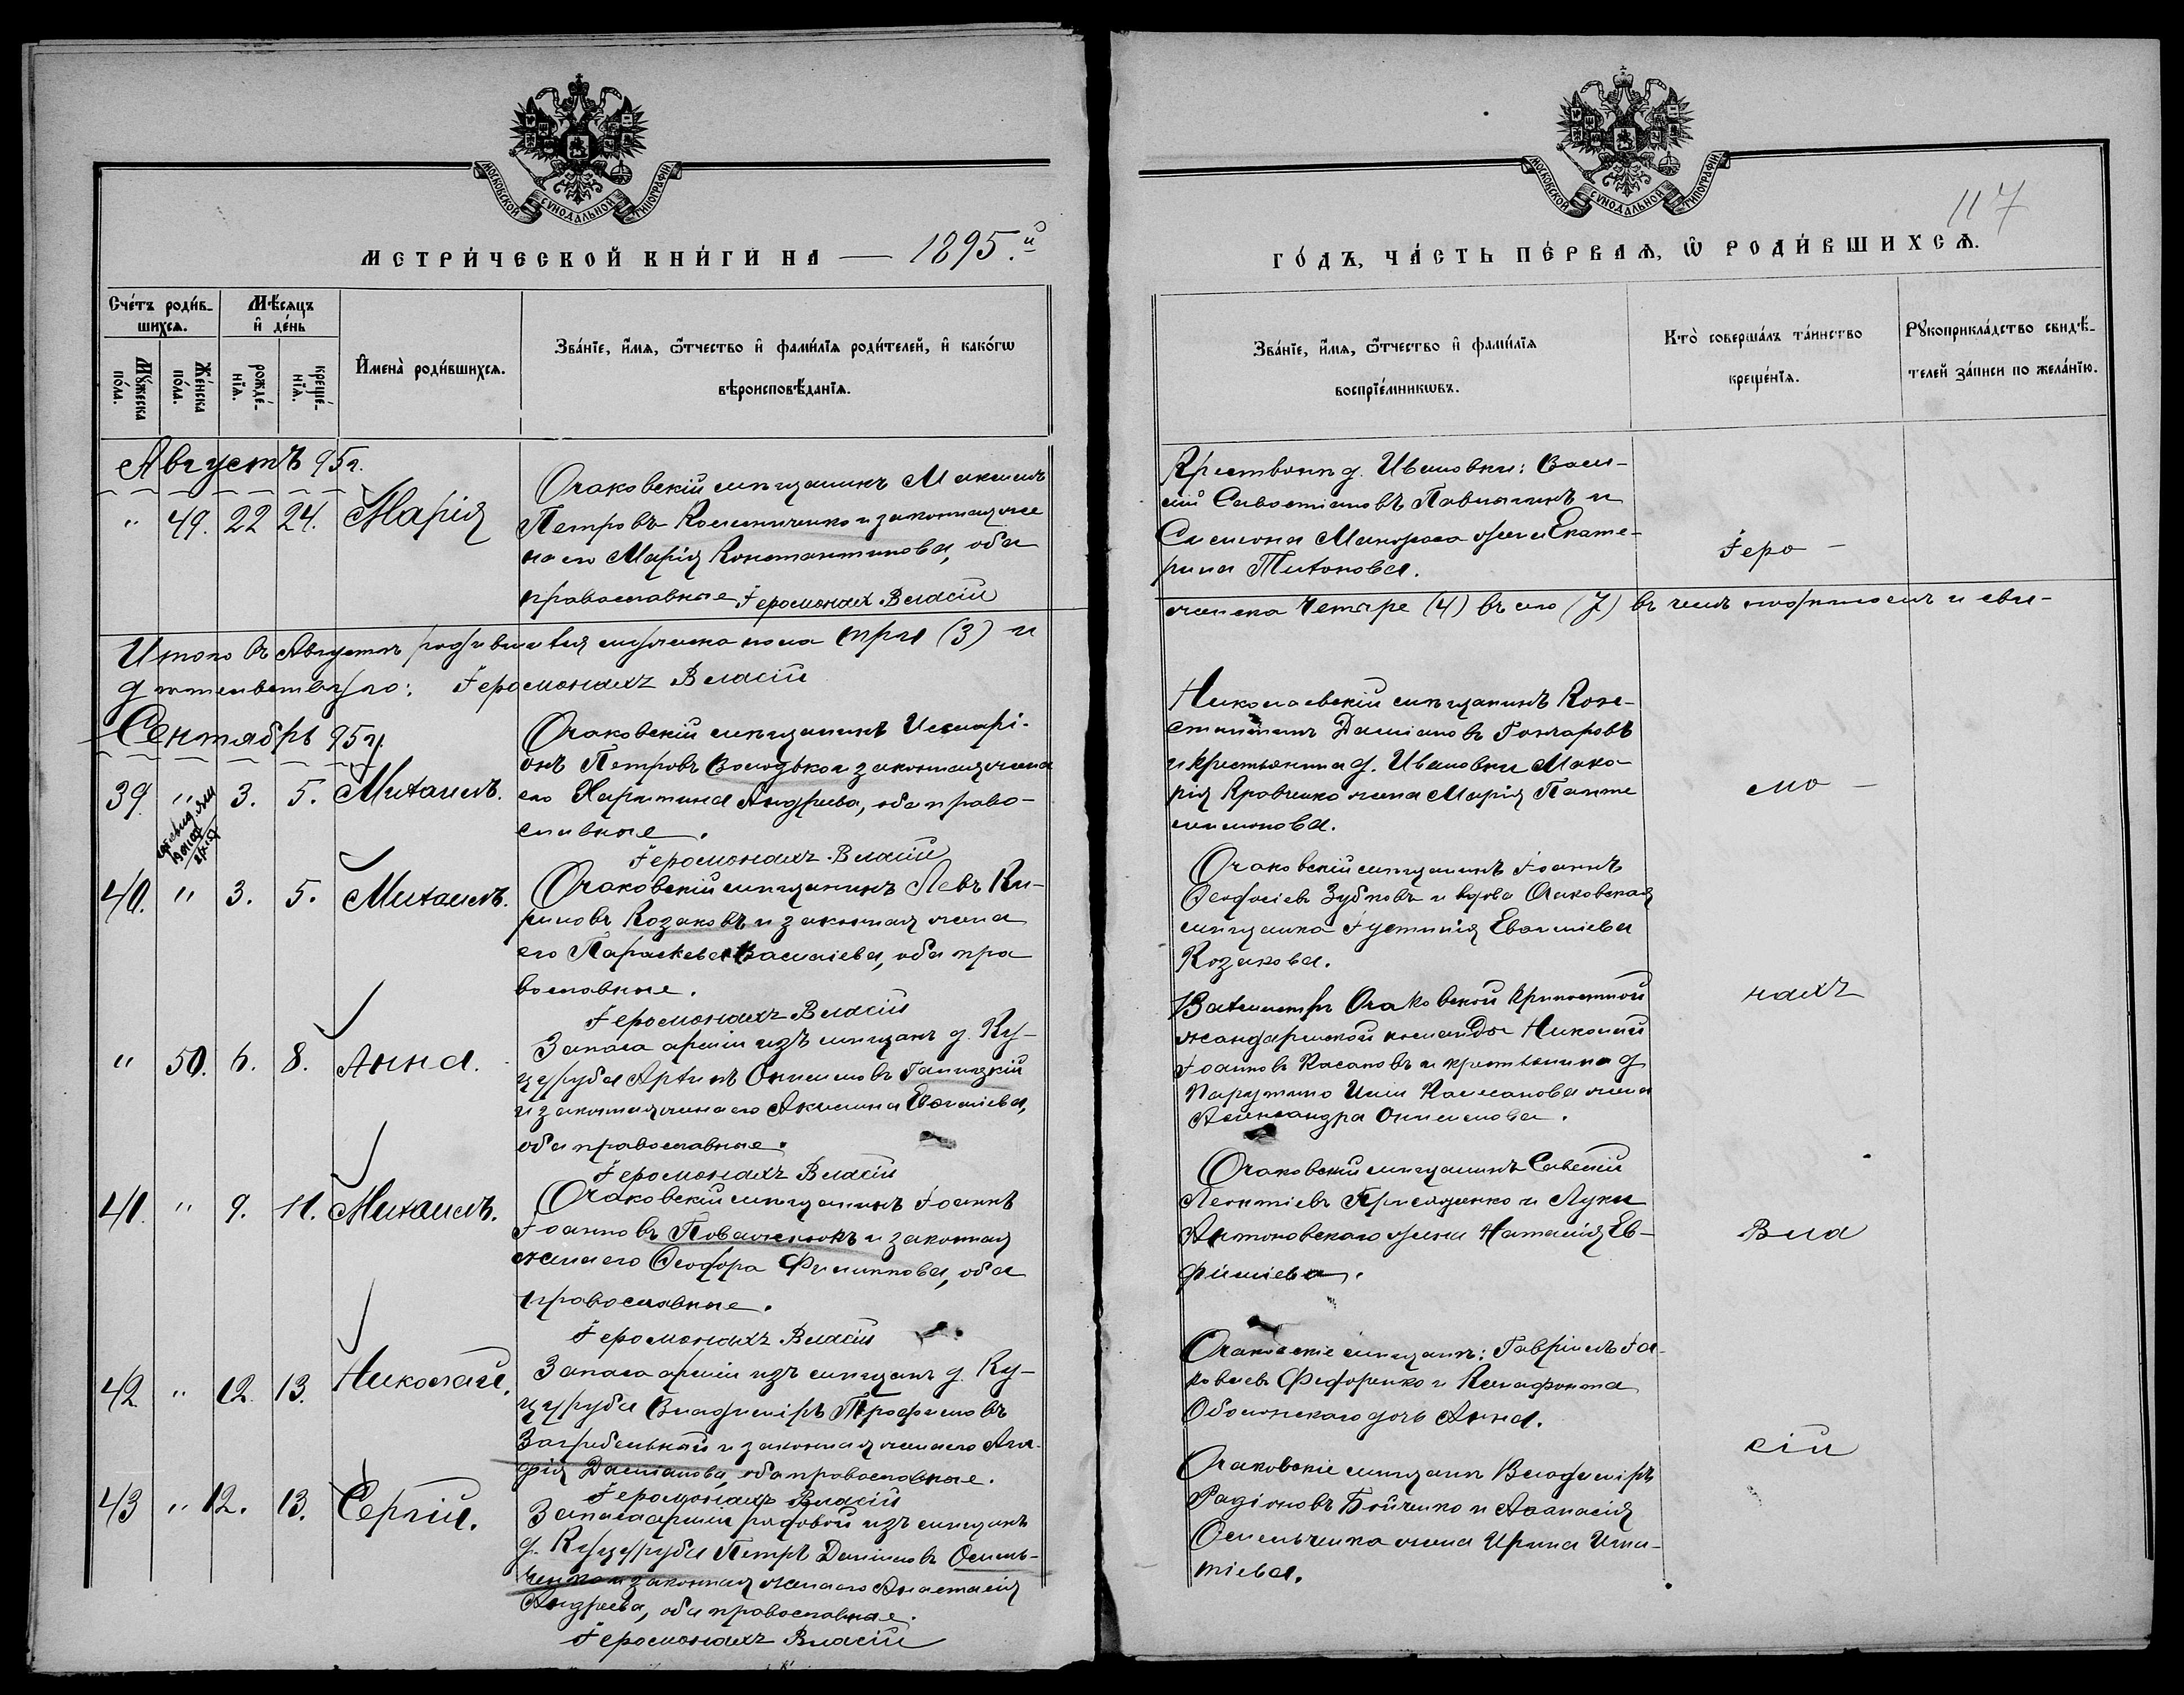 МОСКОВСКОЙ СѴНОДАЛЬНОЙ ТИПОГРАФІИ
МЕТРИ́ЧЕСКОЙ КНИ́ГИ НА — 1895.й
Сче́тъ роди́в-
шихсѧ.
Мѣ́сѧцъ
и҆ де́нь
Мꙋ́жеска
по́ла.
Же́нска
по́ла.
рожде́-
нїѧ.
креще́-
нїѧ.
И҆мена̀ роди́вшихсѧ.
Зва́нїе, и҆́мѧ, ѻ҆́тчество и҆ фами́лїѧ роди́телей, и҆ како́гѡ
вѣроисповѣ́данїѧ.
Августъ 95 г.
" 49. 22 24. Марія
Очаковскій мѣщанинъ Максимъ
Петровъ Колесниченко и законная же
на его Марія Константинова, оба
православные Іеромонахъ Власій
Итого въ Августѣ родившихся мужеска пола три (3) и
дѣтельствую: Іеромонахъ Власій
Сентябрь 95 г.
39. " 3. 5. Михаилъ.
Очаковскій мѣщанинъ Иларі-
онъ Петровъ Володько и законная жена
его Харитина Андреева, оба право-
славные.
Іеромонахъ Власій
40. " 3. 5. Михаилъ.
Очаковскій мѣщанинъ Левъ Ки-
риловъ Козаковъ и законная жена
его Параскева Василіева, оба пра
вославные.
Іеромонахъ Власій
" 50. 6. 8. Анна.
Запаса арміи изъ мѣщанъ д. Ку-
цуруба Онисимовъ Галицкій
и законная жена его Акилина
оба православные.
Іеромонахъ Власій
41. " 9. 11. Михаилъ.
Очаковскій мѣщанинъ Іоаннъ
Іоанновъ Поважнюкъ и законная
жена его Ѳеодора Филиппова, оба
православные.
Іеромонахъ Власій
42 " 12. 13. Николай.
Запаса арміи изъ мѣщанъ д. Ку-
цуруба Владиміръ Трофимовъ
Загребельный и законная жена его Ага-
фія Даміанова, оба православные.
Іеромонахъ Власій
43 " 12. 13. Сергій.
Запаса арміи рядовой изъ мѣщанъ
д. Куцуруба Петръ Даніиловъ Омель-
ченко и законная жена его Анастасія
Андреева, оба православные.
Іеромонахъ Власій
МОСКОВСКОЙ СѴНОДАЛЬНОЙ ТИПОГРАФІИ
117
ГО́ДЪ, ЧА́СТЬ ПЕ́РВАѦ, Ѡ҆ РОДИ́ВШИХСѦ.
Зва́нїе, и҆́мѧ, ѻ҆́тчество и҆ фами́лїѧ
воспрїе́мникѡвъ.
Кто̀ соверша́лъ та́инство
креще́нїѧ.
Рꙋкоприкла́дство свидѣ́-
телей за́писи по жела́нїю.
д. Ивановки: Васи-
лій Савостіановъ и
Симеона жена Екате-
рина Тихонова.
Іеро-
женска четыре (4) всего (7) въ чемъ подписомъ и сви-
Николаевскій мѣщанинъ Кон-
стантинъ Даміановъ Гончаровъ
и крестьянина д. Ивановки Мака-
рія Кравченко жена Марія Панте
леимонова.
мо-
Очаковскій мѣщанинъ Іоаннъ
Ѳеодосіевъ Зубковъ и вдова Очаковская
мѣщанка Іустинія
Козакова.
Вахмистръ Очаковской крѣпостной
жандармской команды Николай
Іоанновъ Касановъ и крестьянина д
Парутино жена
Александра Онисимова.
нахъ
Очаковскій мѣщанинъ Савелій
Леонтіевъ Присяженко и Луки
Антоновскаго жена Наталія Ев-
фиміева.
Вла
Очаковскіе мѣщане: Гавріилъ Іа-
ковлевъ Федоренко и Ксенофонта
Оболонскаго дочь Анна.
Очаковскіе мѣщане Владиміръ
Радіоновъ Бойченко и Аѳанасія
Омельченка жена Ирина Игна-
тіева.
сій